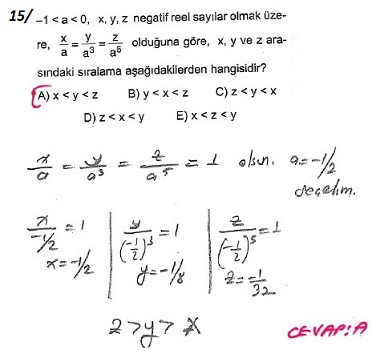 15/ -1 < a < 0, x, y, z negatif reel sayılar olmak üze-
re, x/a = y/a³ = z/a⁵ olduğuna göre, x, y ve z ara-
sındaki sıralama aşağıdakilerden hangisidir?
A) x < y < z B) y < x < z C) z < y < x
D) z < x < y E) x < z < y
x/a = y/a³ = z/a⁵ = 1 olsun. a = -1/2
seçelim.
x/(-1/2) = 1 y/(-1/2)³ = 1 z/(-1/2)⁵ = 1
x = -1/2 y = -1/8 z = -1/32
z > y > x
CEVAP: A